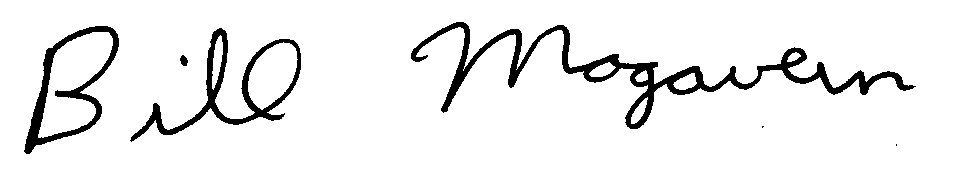 Bill Magavern